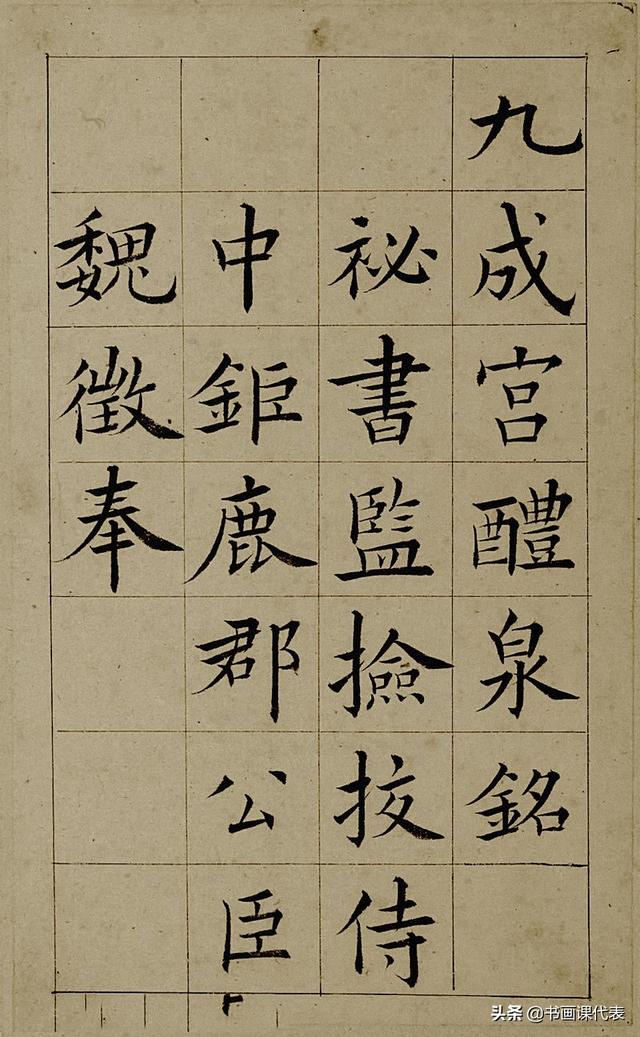 九成宮醴泉銘
祕書監撿挍侍
中鉅鹿郡公臣
魏徵奉
头条 @书画课代表